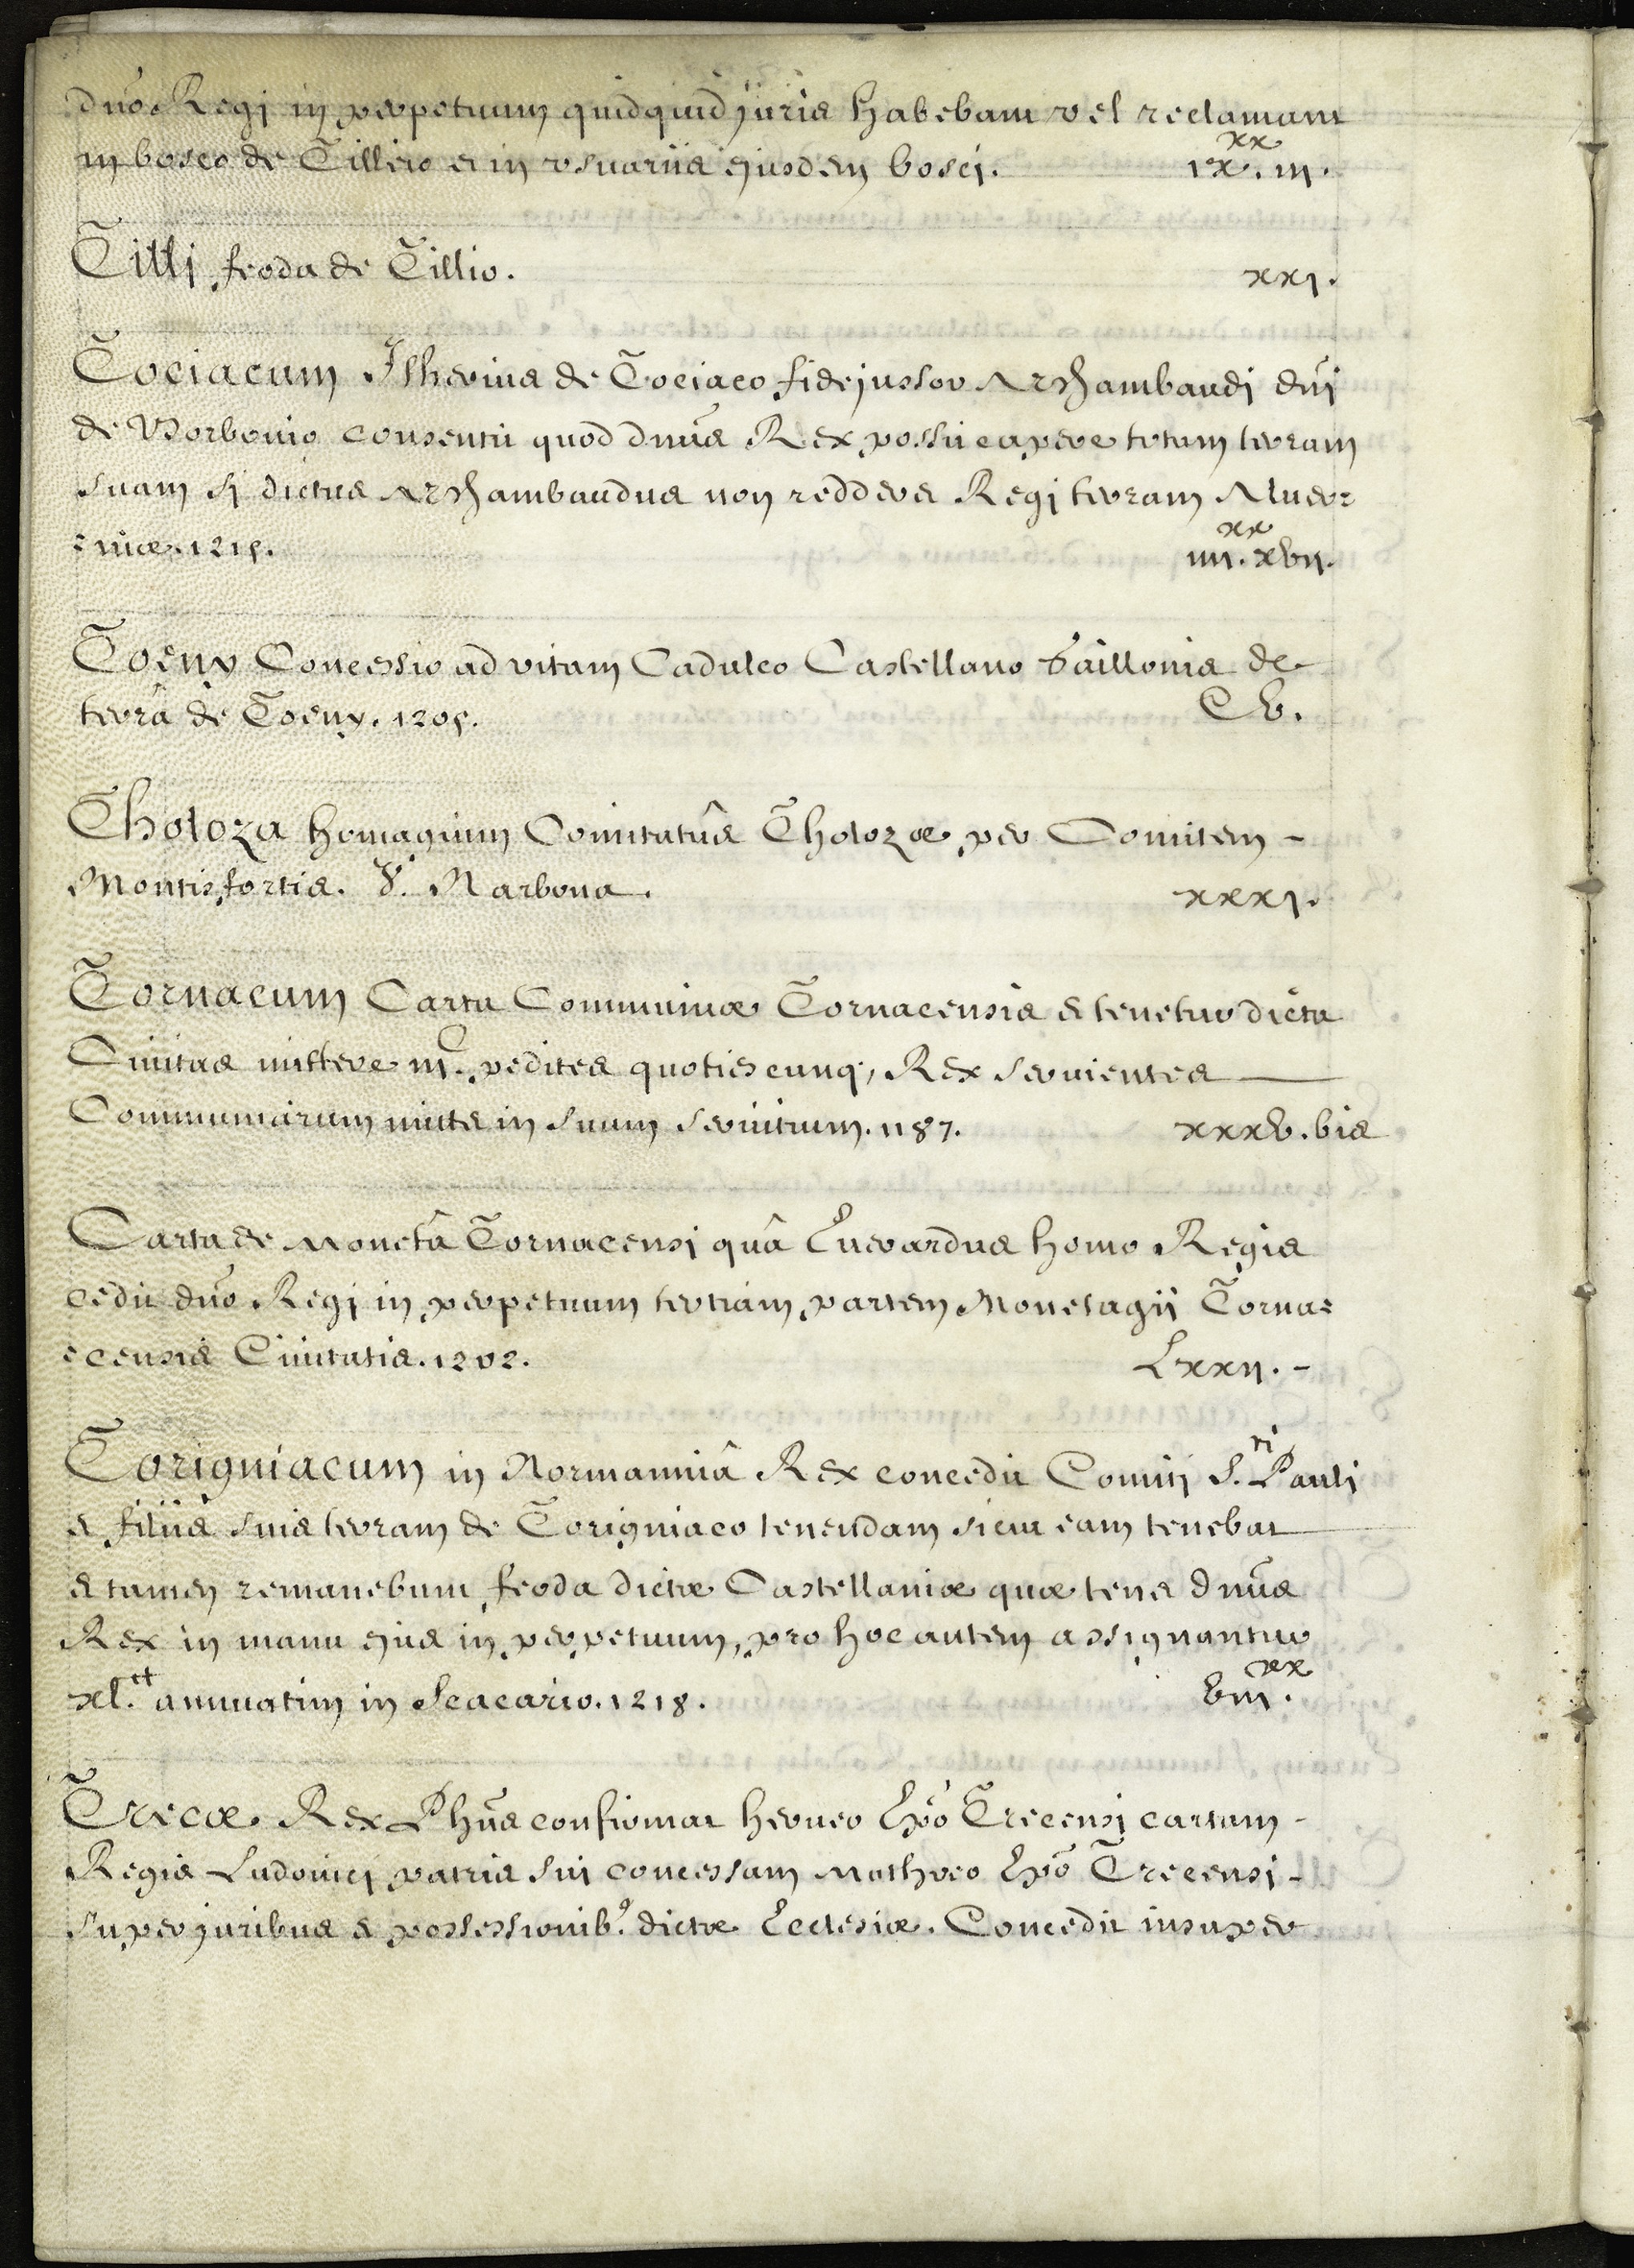 dno Regi in perpetuum quidquid juris habebant vel reclamant
in bosco de Tillers et in vsuariis ejusdem bosci. ix.xx iii.
Tilli feoda de Tillio. xxi.
Tociacum Itherius de Tociaco fidejussor Archambaudi dni
de Borbonio consentit quod dnus Rex possit capere totam terram
suam si dictus Archambaudus non redderet Regi terram Aluer=
=niæ. 1215. iiii.xx xvii.
Toeny Concessio ad vitam Cadulco Castellano Gaillonis de
terrâ de Toeny. 1205. Cv.
Tholoza homagium Comitatûs Tholozæ per Comitem -
Montisfortis. V. Narbona. xxxi.
Tornacum Carta Communiæ Tornacensis et tenetur dicta
Ciuitas mittere iii.C pedites quotiescunq; Rex seruientes
Communiarum mittet in suum seruitium. 1187. xxxv. bis
Carta de Monetâ Tornacensi quâ Euerardus homo Regis
cedit dno Regi in perpetuum tertiam partem Monetagii Torna=
=censis Ciuitatis. 1202. Lxxii. -
Torigniacum in Normanniâ Rex concedit Comiti S.ti Pauli
et filiis suis terram de Torigniaco tenendam sicut eam tenebat
et tamen remanebunt feoda dictæ Castellaniæ quæ tenet dnus
Rex in manu ejus in perpetuum, pro hoc autem assignantur
xl.tt annuatim in Scacario. 1218. vi.xx
Trecæ Rex Phus confirmat herueo Epo Trecensi cartam -
Regis Ludouici patris sui concessam Matheo Epo Trecensi -
super juribus et possessionib9 dictæ Ecclesiæ. Concedit insuper